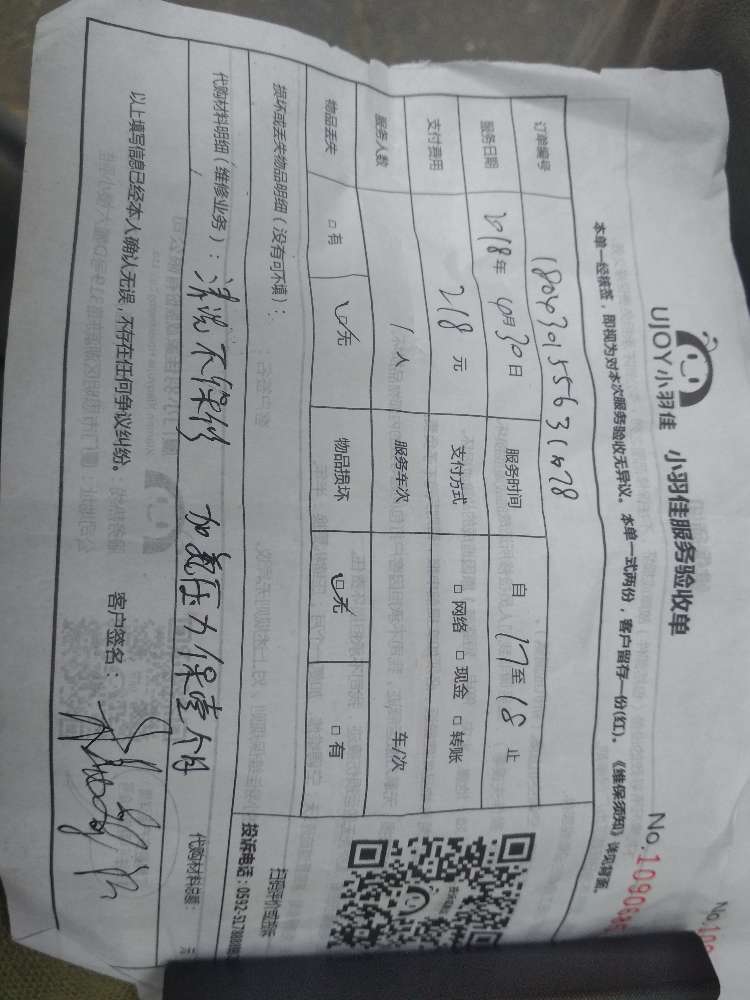 UJOY小羽佳 小羽佳服务验收单
No.109086
本单一经核签，即视为对本次服务验收无异议。本单一式两份，客户留存一份(红)。《维保须知》详见背面。
订单编号
服务日期 2018年 4月30日 服务时间 自 17至18 止
支付费用 218元 支付方式 □网络 □现金 □转账
服务人数 1人 服务车次 车/次
物品丢失 □有 □无 物品损坏 □无 □有
损坏或丢失物品明细（没有可不填）：
扫码评价或投诉
投诉电话：0592-517888
代购材料明细（维修业务）：清洗不保修 加氟压力保壹个月
代购材料总额： 元
以上填写信息已经本人确认无误，不存在任何争议纠纷。 客户签名：